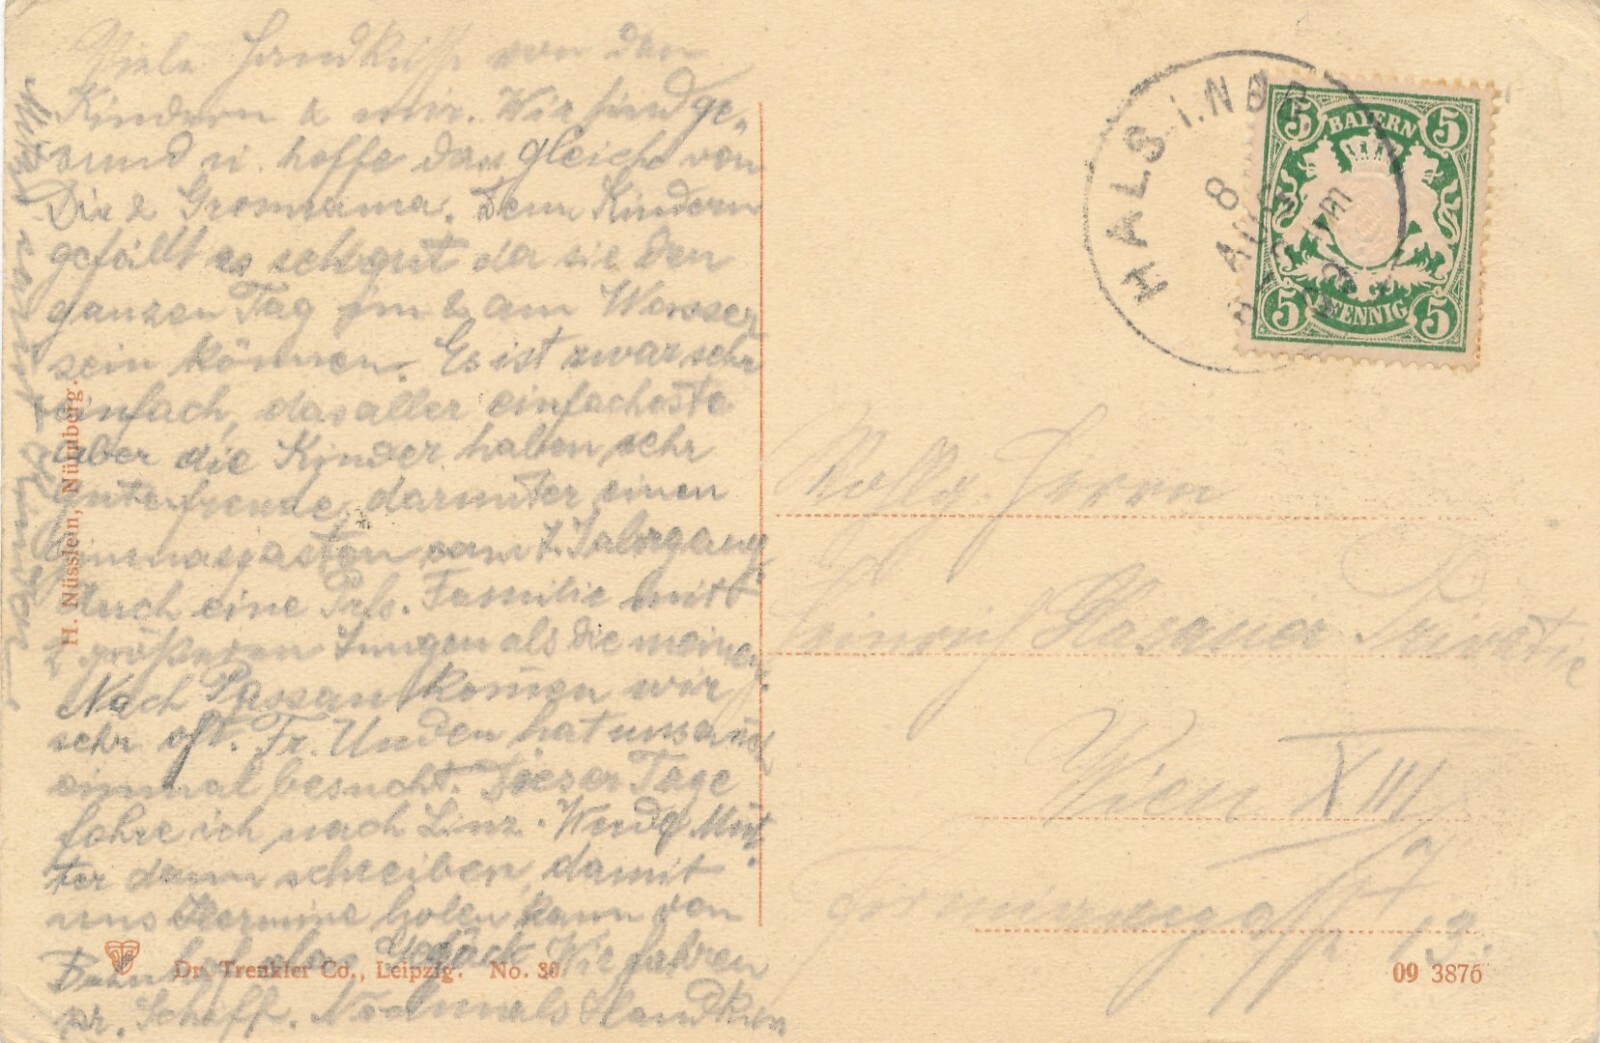 Viele Handküsse von den
Kindern & mir. Wir sind ge-
sund u. hoffe das gleiche von
Dir & Grossmama. Den Kindern
gefällt es sehr gut da sie den
ganzen Tag im & am Wasser
sein können. Es ist zwar sehr
einfach, das aller einfachste
aber die Kinder haben sehr
gute Freunde, darunter einen
Gimnasiasten vom 7. Jahrgang
auch eine Familie mit
2 größeren Jungen als die meinen.
Nach Passau kommen wir
sehr oft. Fr. Unden hat uns auch
einmal besucht. Dieser Tage
fahre ich nach Linz. Werde Mut-
ter dann schreiben, damit
uns Hermine holen kann von
Bahnhof Wir fahren
pr. Schiff. Nochmals Handküsse
H. Nüsslein, Nürnberg.
Dr. Trenkler Co., Leipzig. No. 30
HALS i. NDB.
8 AUG
BAYERN
5 5
5 5
PFENNIG
Wollg. Herrn
Heinrich Privatie
Wien XIII
13.
09 3876